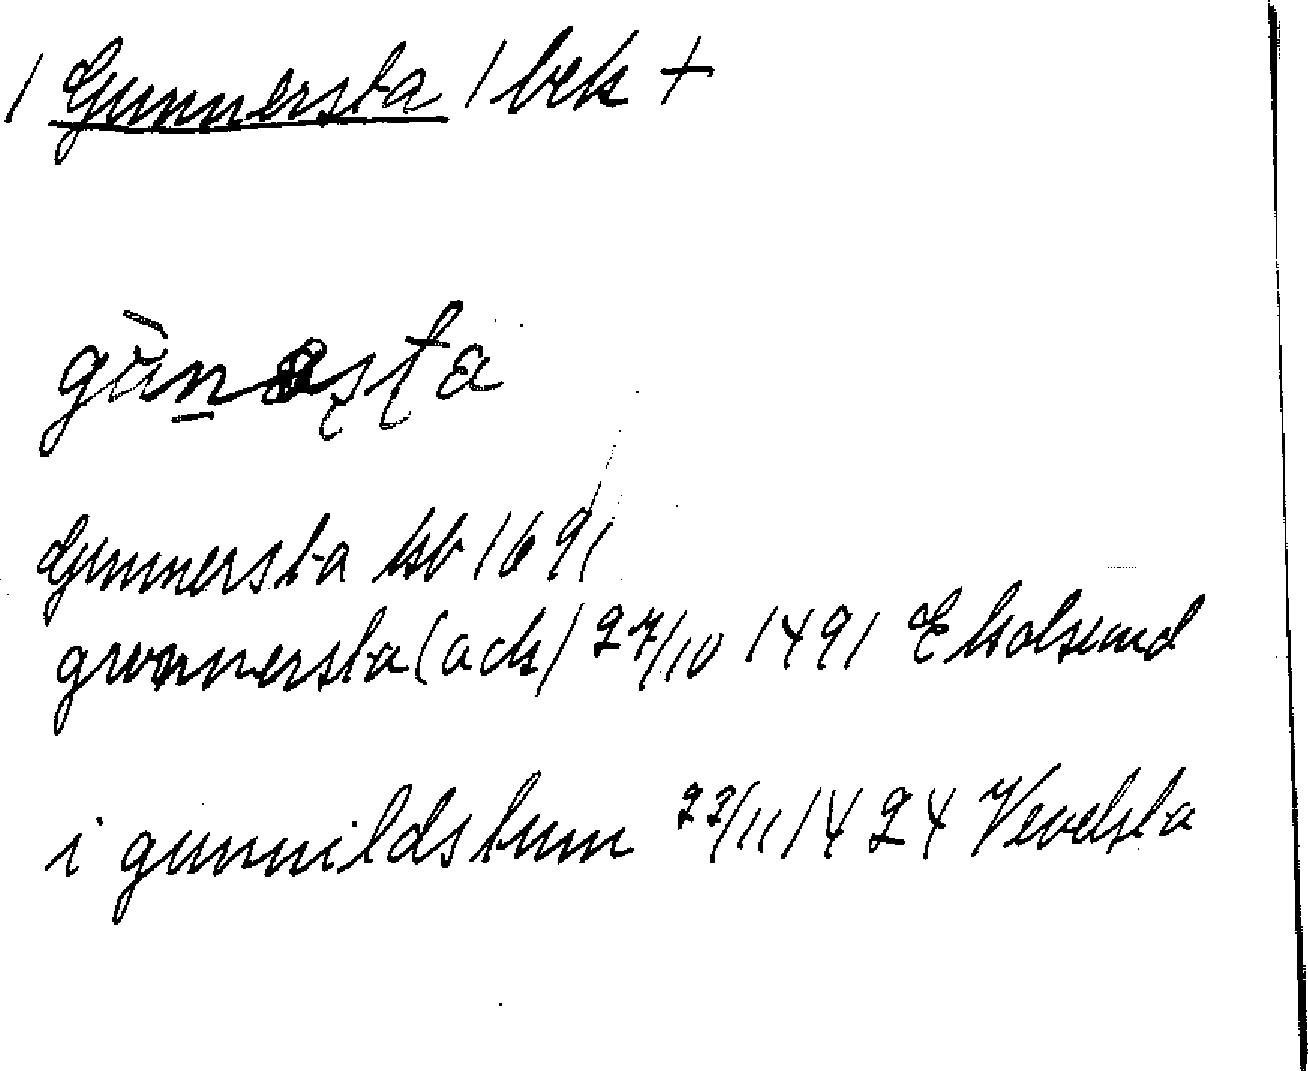 / Gunnersta / bek +
gùnəsta
Gunnersta ksb 1691
gwnnersta (ack) 27/10 1491 Ekolsund
i gunnildstum 22/11 1424 Vevelsta